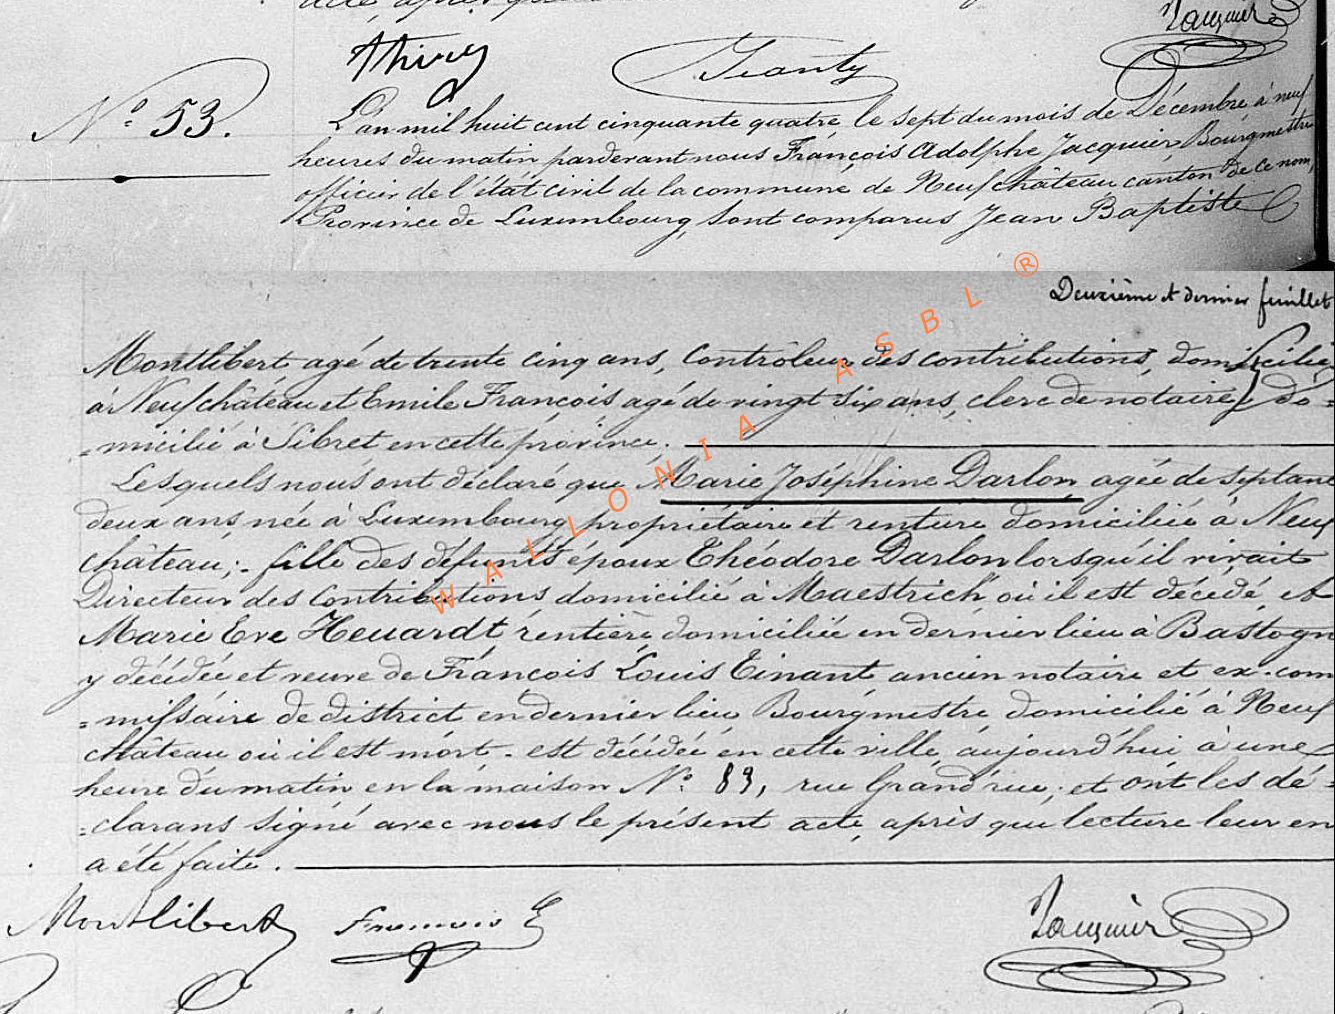 acte, après que
Thiry Jeanty Jacquier
N° 53.
L'an mil huit cent cinquante quatre le sept du mois de Décembre à neuf
heures du matin pardevant nous François Adolphe Jacquier Bourgmestre
officier de l'état civil de la commune de Neufchâteau canton de ce nom,
Province de Luxembourg, sont comparus Jean Baptiste
WALLONIA ASBL ®
Deuxième et dernier feuillet
Montlibert agé de trente cinq ans, Contrôleur des contributions, domicilié
à Neufchâteau et Emile François agé de vingt six ans, clerc de notaire, do=
=micilié à Sibret en cette province.
Lesquels nous ont déclaré que Marie Joséphine Darlon agée de septante
deux ans née à Luxembourg propriétaire et rentière domiciliée à Neuf
château; fille des défunts époux Théodore Darlon lorsqu'il vivait
Directeur des Contributions domicilié à Maestrich où il est décédé et
Marie Eve Heuardt rentière domiciliée en dernier lieu à Bastogn
y décédée et veuve de François Louis Tinant ancien notaire et ex-com
=missaire de district en dernier lieu Bourgmestre domicilié à Neuf
château où il est mort - est décédée en cette ville aujourd'hui à une
heure du matin en la maison N° 89, rue Grand'rue; et ont les dé=
=clarans signé avec nous le présent acte, après que lecture leur en
a été faite.
Montlibert François E Jacquier